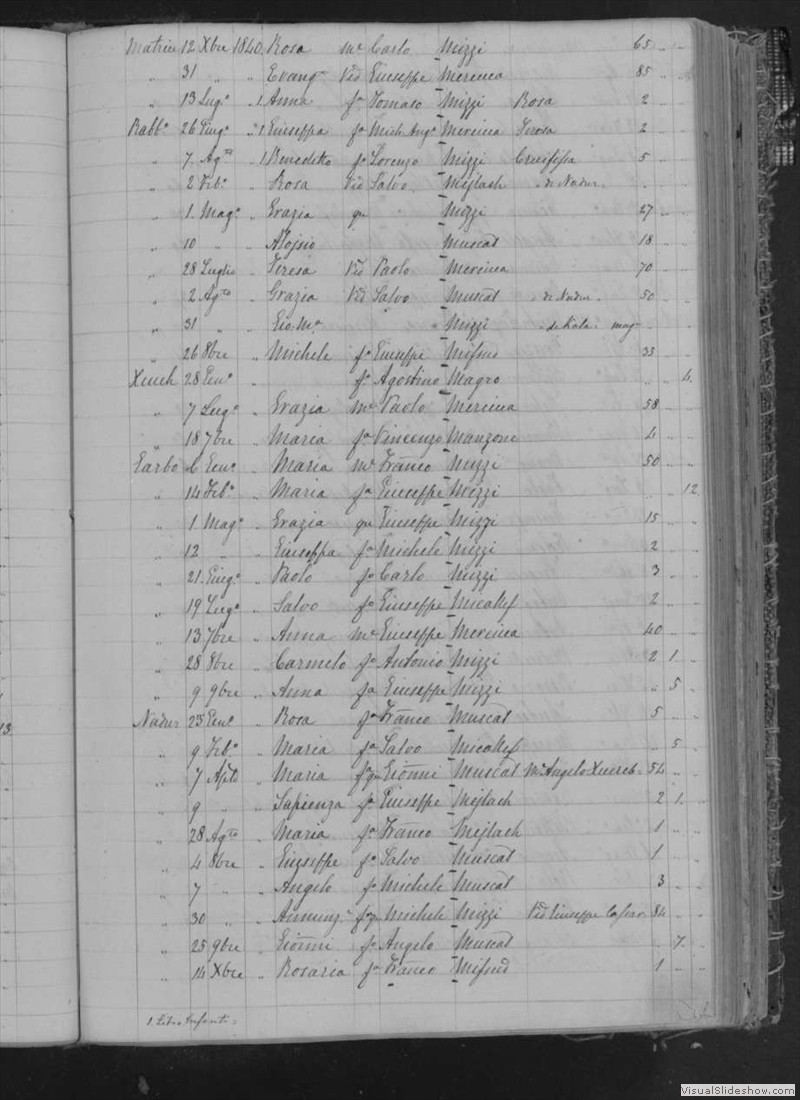 Matrice 12 Xbre 1840 Rosa me Carlo Mizzi 65 " "
" 31 " " Evang.a Vid Giuseppe Mercieca 85 " "
" 13 Lug.o " 1 Anna fa Tomaso Mizzi Rosa 2 " "
Rabb.o 26 Giug.o " 1 Giuseppa fa Mich.Ang.o Mercieca Teresa 2 " "
" 7 Ag.to 1 Benedetto fo Lorenzo Mizzi Crucifissa 5 " "
" 2 Feb.o " Rosa Vid Salvo Mejlach de Nadur " " "
" 1 Mag.o " Grazia qu Mizzi 27 " "
" 10 " " Alojsio Muscat 18 " "
" 28 Luglio " Teresa Vid Paolo Mercieca 70 " "
" 2 Ag.to " Grazia Vid Salvo Muscat de Nadur 50 " "
" 31 " " Gio.M.a " Mizzi de Kala mag " "
" 26 8bre " Michele fo Giuseppe Mifsud 33 " "
Xeuch 28 Gen.o " fo Agostino Magro " " 4
" 7 Lug.o " Grazia me Paolo Mercieca 58 " "
" 18 7bre " Maria fa Vincenzo Manzone 4 " "
Garbo 6 Gen.o " Maria me Franco Mizzi 50 " "
" 14 Feb.o " Maria fa Giuseppe Mizzi " " 12
" 1 Mag.o " Grazia qu Giuseppe Mizzi 15 " "
" 12 " " Giuseppa fa Michele Mizzi 2 " "
" 21 Giug.o " Paolo fo Carlo Mizzi 3 " "
" 19 Lug.o " Salvo fo Giuseppe Micallef 2 " "
" 13 7bre " Anna me Giuseppe Mercieca 40 " "
" 28 8bre " Carmelo fo Antonio Mizzi 2 1 "
" 9 9bre " Anna fa Giuseppe Mizzi " 5 "
Nadur 25 Gen.o " Rosa fa Franco Muscat 5 " "
" 9 Feb.o " Maria fa Salvo Micallef " 5 "
" 7 Ap.to " Maria fa qu Gionni Muscat Me Angelo Xuereb 54 " "
" 9 " " Sapienza fa Giuseppe Mejlach 2 1 "
" 28 Ag.to " Maria fa Franco Mejlach 1 " "
" 4 8bre " Giuseppe fo Salvo Muscat 1 " "
" 7 " " Angelo fo Michele Muscat 3 " "
" 30 " " Annunz.a fa q Michele Mizzi Vid Giuseppe 84 " "
" 25 9bre " Gionni fo Angelo Muscat " 7 "
" 14 Xbre " Rosaria fa Franco Mifsud 1 " "
1. Libro Infanti
13
VisualSlideshow.com